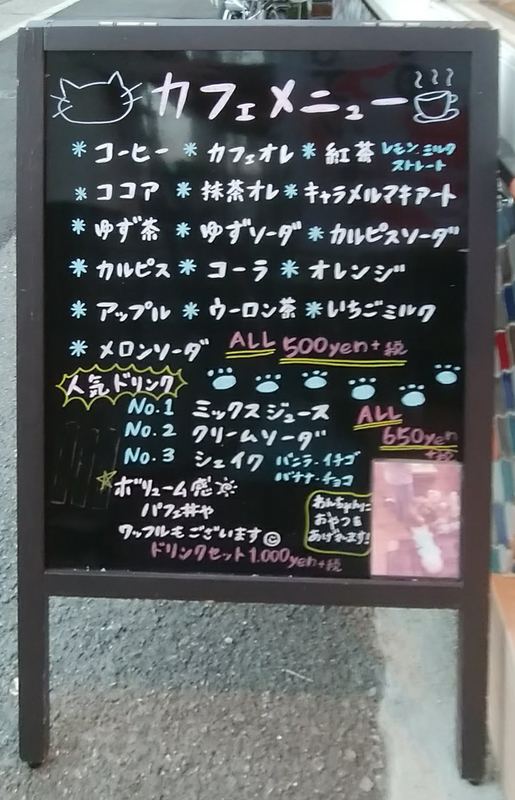 カフェメニュー
* コーヒー * カフェオレ * 紅茶 レモン、ミルク
ストレート
* ココア * 抹茶オレ * キャラメルマキアート
* ゆず茶 * ゆずソーダ * カルピスソーダ
* カルピス * コーラ * オレンジ
* アップル * ウーロン茶 * いちごミルク
* メロンソーダ ALL 500yen+税
人気ドリンク
No.1 ミックスジュース ALL
No.2 クリームソーダ 650yen
+税
No.3 シェイク バニラ・イチゴ
バナナ・チョコ
ボリューム感
パフェ丼や
ワッフルもございます
ドリンクセット1.000yen+税
おやつを
あげれます!